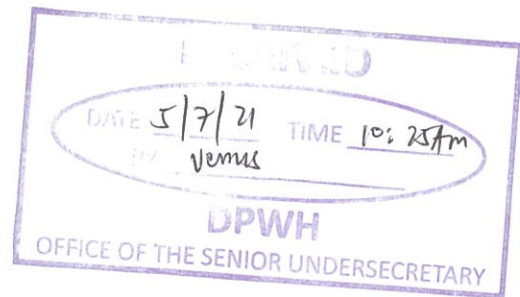 RECEIVED
DATE 5/7/21 TIME 10:25Am
BY Venus
DPWH
OFFICE OF THE SENIOR UNDERSECRETARY